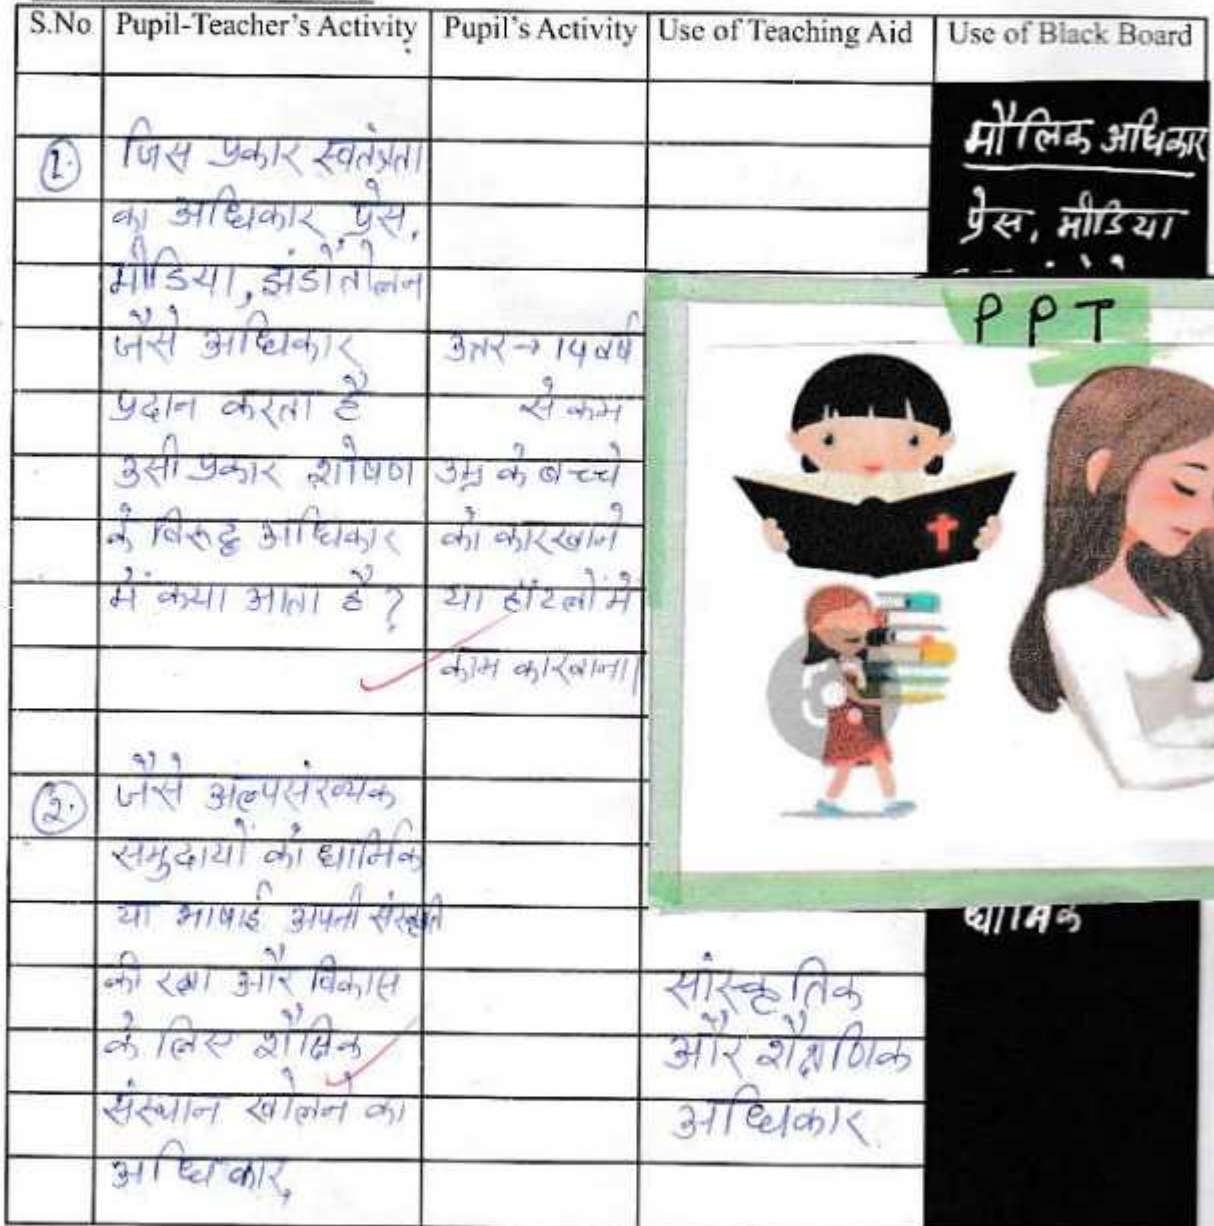 S.No Pupil-Teacher's Activity Pupil's Activity Use of Teaching Aid Use of Black Board
1. जिस प्रकार स्वतंत्रता
का अधिकार प्रेस,
मीडिया, झंडोतोलन
जैसे अधिकार
प्रदान करता है
उसी प्रकार शोषण
के विरुद्ध अधिकार
में क्या आता है?
उत्तर → 14 वर्ष
से कम
उम्र के बच्चे
को कारखाने
या होटलों में
काम कारवाना।
मौलिक अधिकार
प्रेस, मीडिया
PPT
2. जैसे अल्पसंख्यक
समुदायों को धार्मिक
या भाषाई अपनी संस्कृति
की रक्षा और विकास
के लिए शैक्षिक
संस्थान खोलने का
अधिकार,
सांस्कृतिक
और शैक्षणिक
अधिकार
धार्मिक